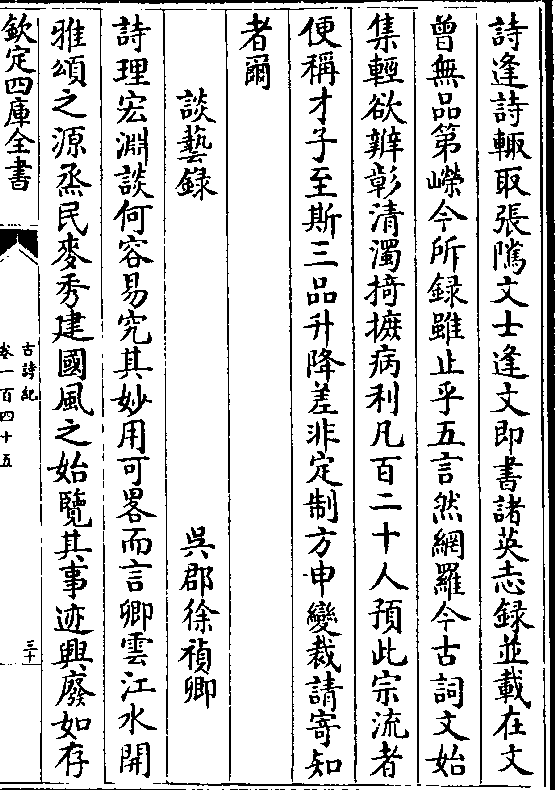 詩逢詩輒取張隲文士逢文即書諸英志録並載在文
曾無品第嶸今所録雖止乎五言然網羅今古詞文始
集輕欲辨彰清濁掎摭病利凡百二十人預此宗流者
便稱才子至斯三品升降差非定制方申變裁請寄知
者爾
談藝録
吳郡徐禎卿
詩理宏淵談何容易究其妙用可畧而言卿雲江水開
雅頌之源烝民麥秀建國風之始覽其事迹興廢如存
欽定四庫全書
古詩紀
卷一百四十五
三十